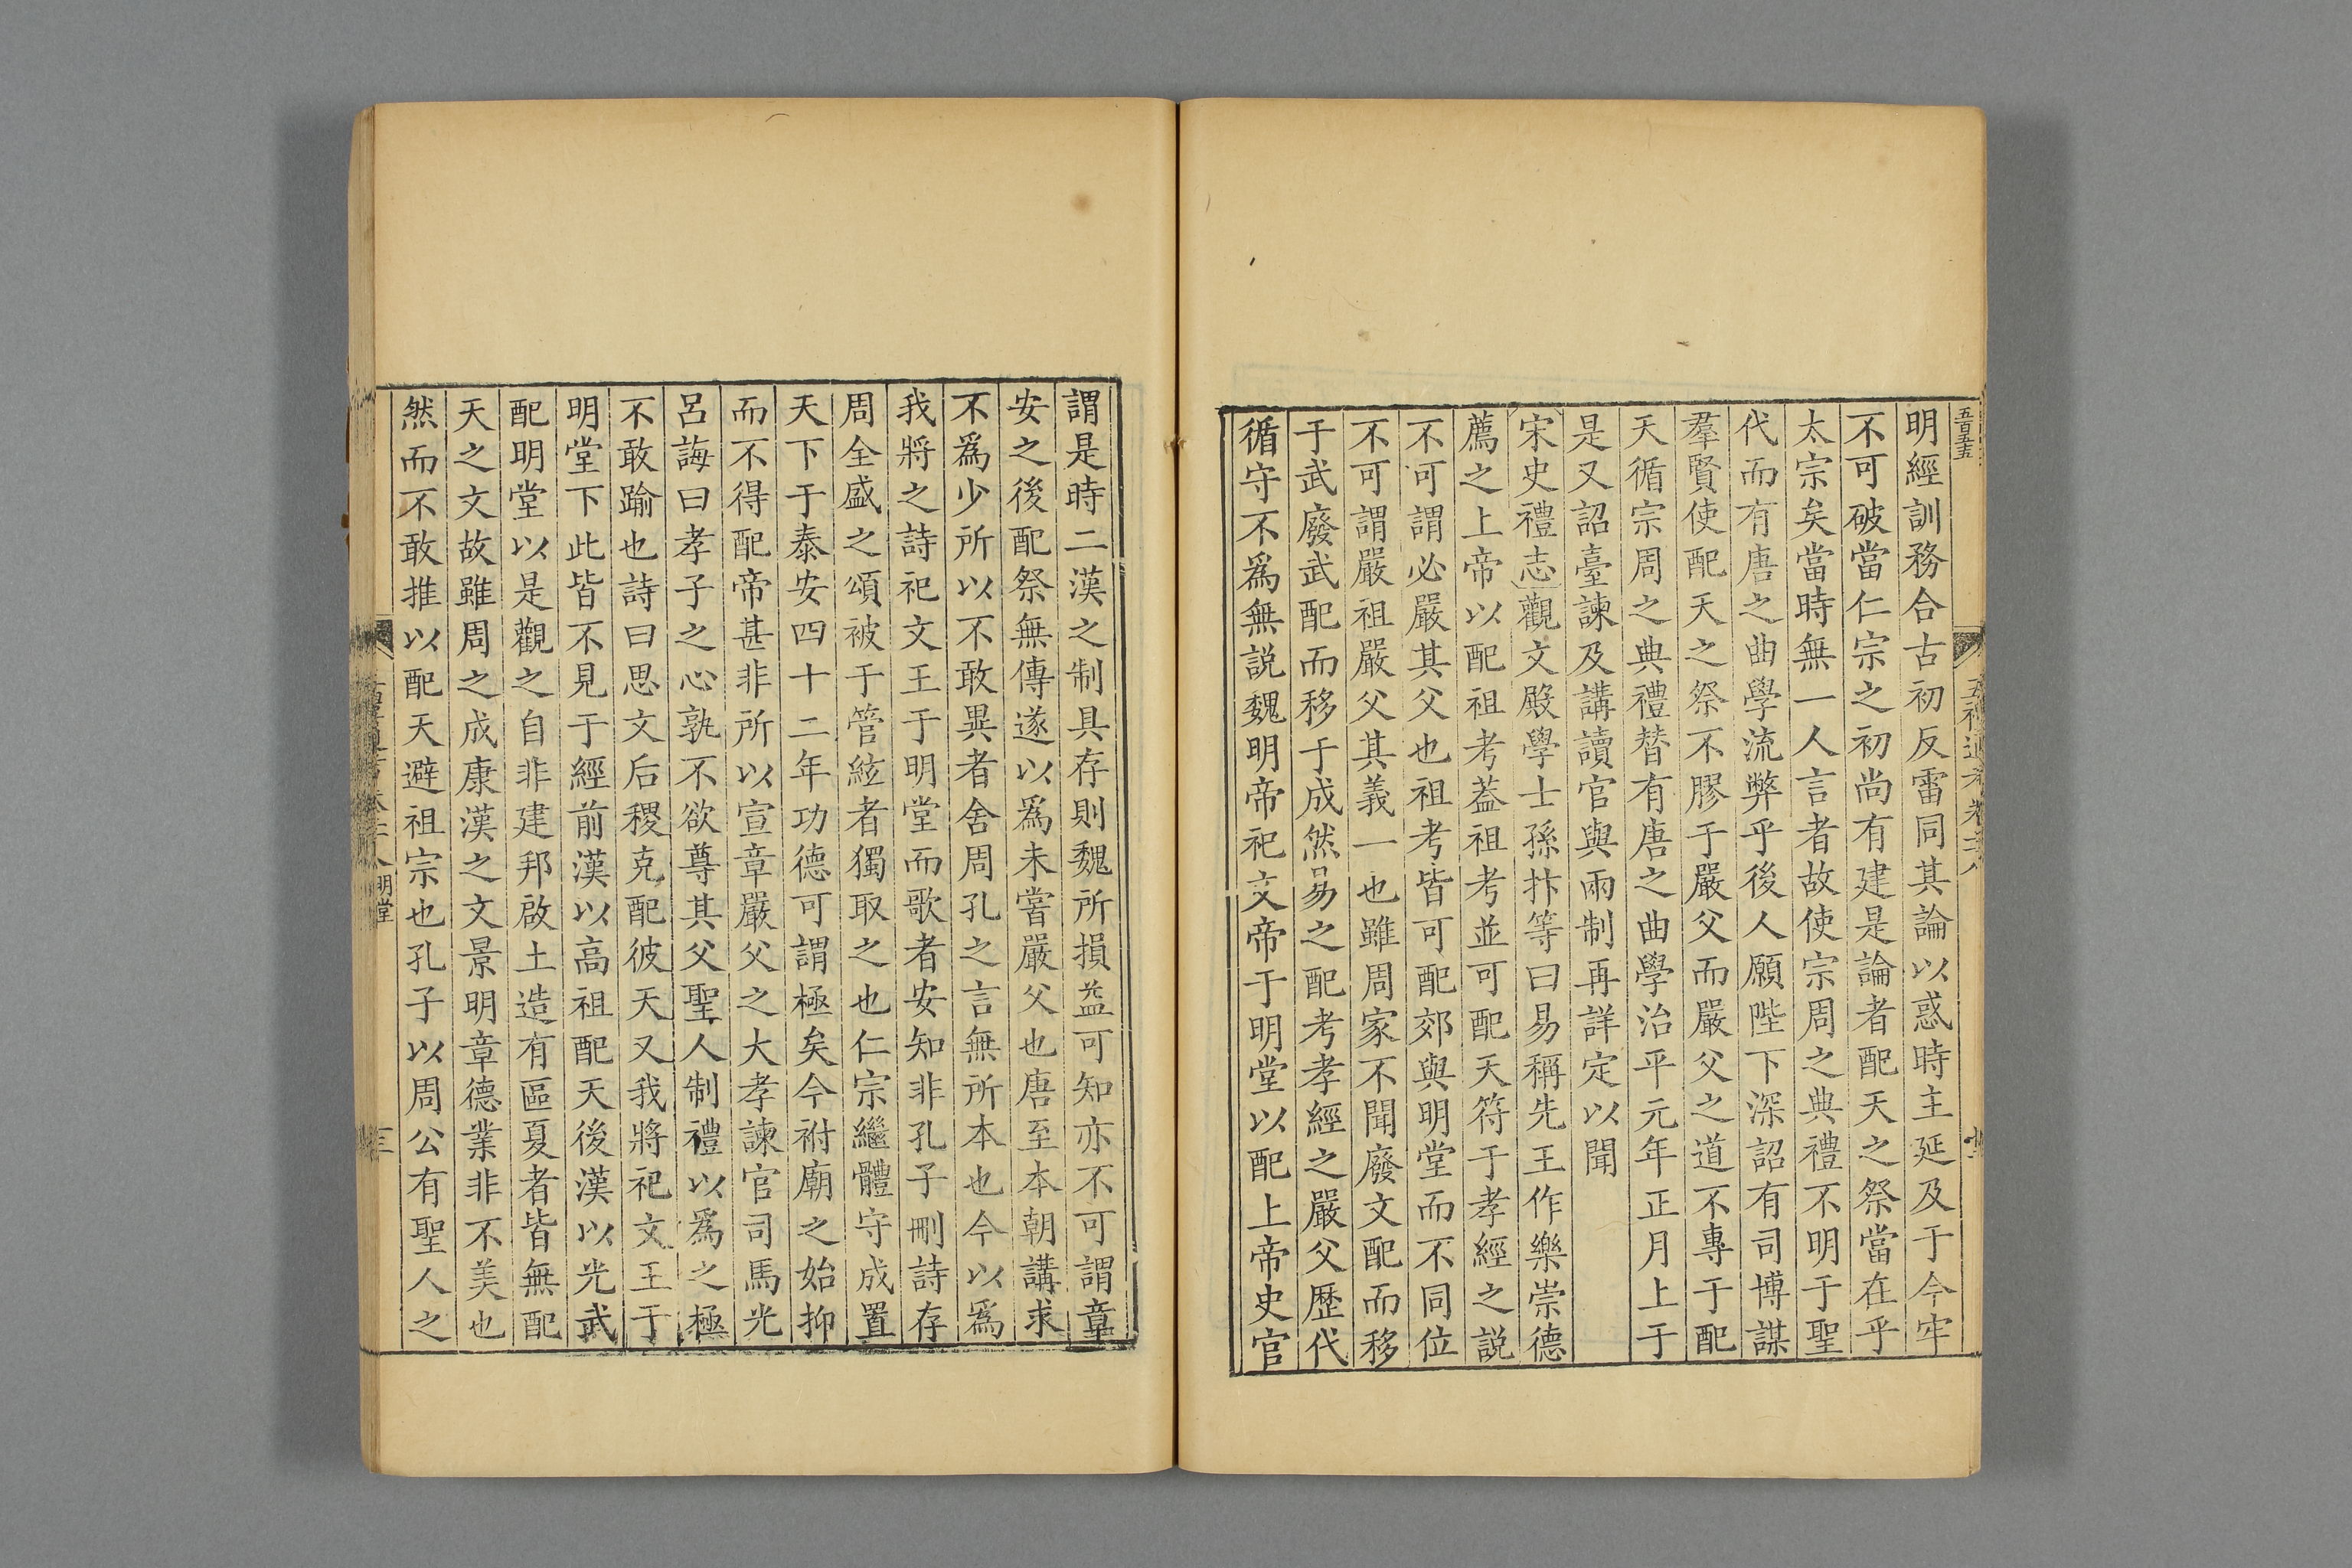 五百五十五
五禮通考卷二十六
明經訓務合古初反雷同其論以惑時主延及于今牢
不可破當仁宗之初尚有建是論者配天之祭當在乎
太宗矣當時無一人言者故使宗周之典禮不明于聖
代而有唐之曲學流弊乎後人願陛下深詔有司博謀
羣賢使配天之祭不膠于嚴父而嚴父之道不專于配
天循宗周之典禮替有唐之曲學治平元年正月上于
是又詔臺諫及講讀官與兩制再詳定以聞
宋史禮志觀文殿學士孫抃等曰易稱先王作樂崇德
薦之上帝以配祖考葢祖考並可配天符于孝經之説
不可謂必嚴其父也祖考皆可配郊與明堂而不同位
不可謂嚴祖嚴父其義一也雖周家不聞廢文配而移
于武廢武配而移于成然易之配考孝經之嚴父歷代
循守不爲無説魏明帝祀文帝于明堂以配上帝史官
謂是時二漢之制具存則魏所損益可知亦不可謂章
安之後配祭無傳遂以爲未嘗嚴父也唐至本朝講求
不爲少所以不敢異者舍周孔之言無所本也今以爲
我將之詩祀文王于明堂而歌者安知非孔子刪詩存
周全盛之頌被于管絃者獨取之也仁宗繼體守成置
天下于泰安四十二年功德可謂極矣今祔廟之始抑
而不得配帝甚非所以宣章嚴父之大孝諫官司馬光
呂誨曰孝子之心孰不欲尊其父聖人制禮以爲之極
不敢踰也詩曰思文后稷克配彼天又我將祀文王于
明堂下此皆不見于經前漢以高祖配天後漢以光武
配明堂以是觀之自非建邦啟土造有區夏者皆無配
天之文故雖周之成康漢之文景明章德業非不美也
然而不敢推以配天避祖宗也孔子以周公有聖人之
明堂